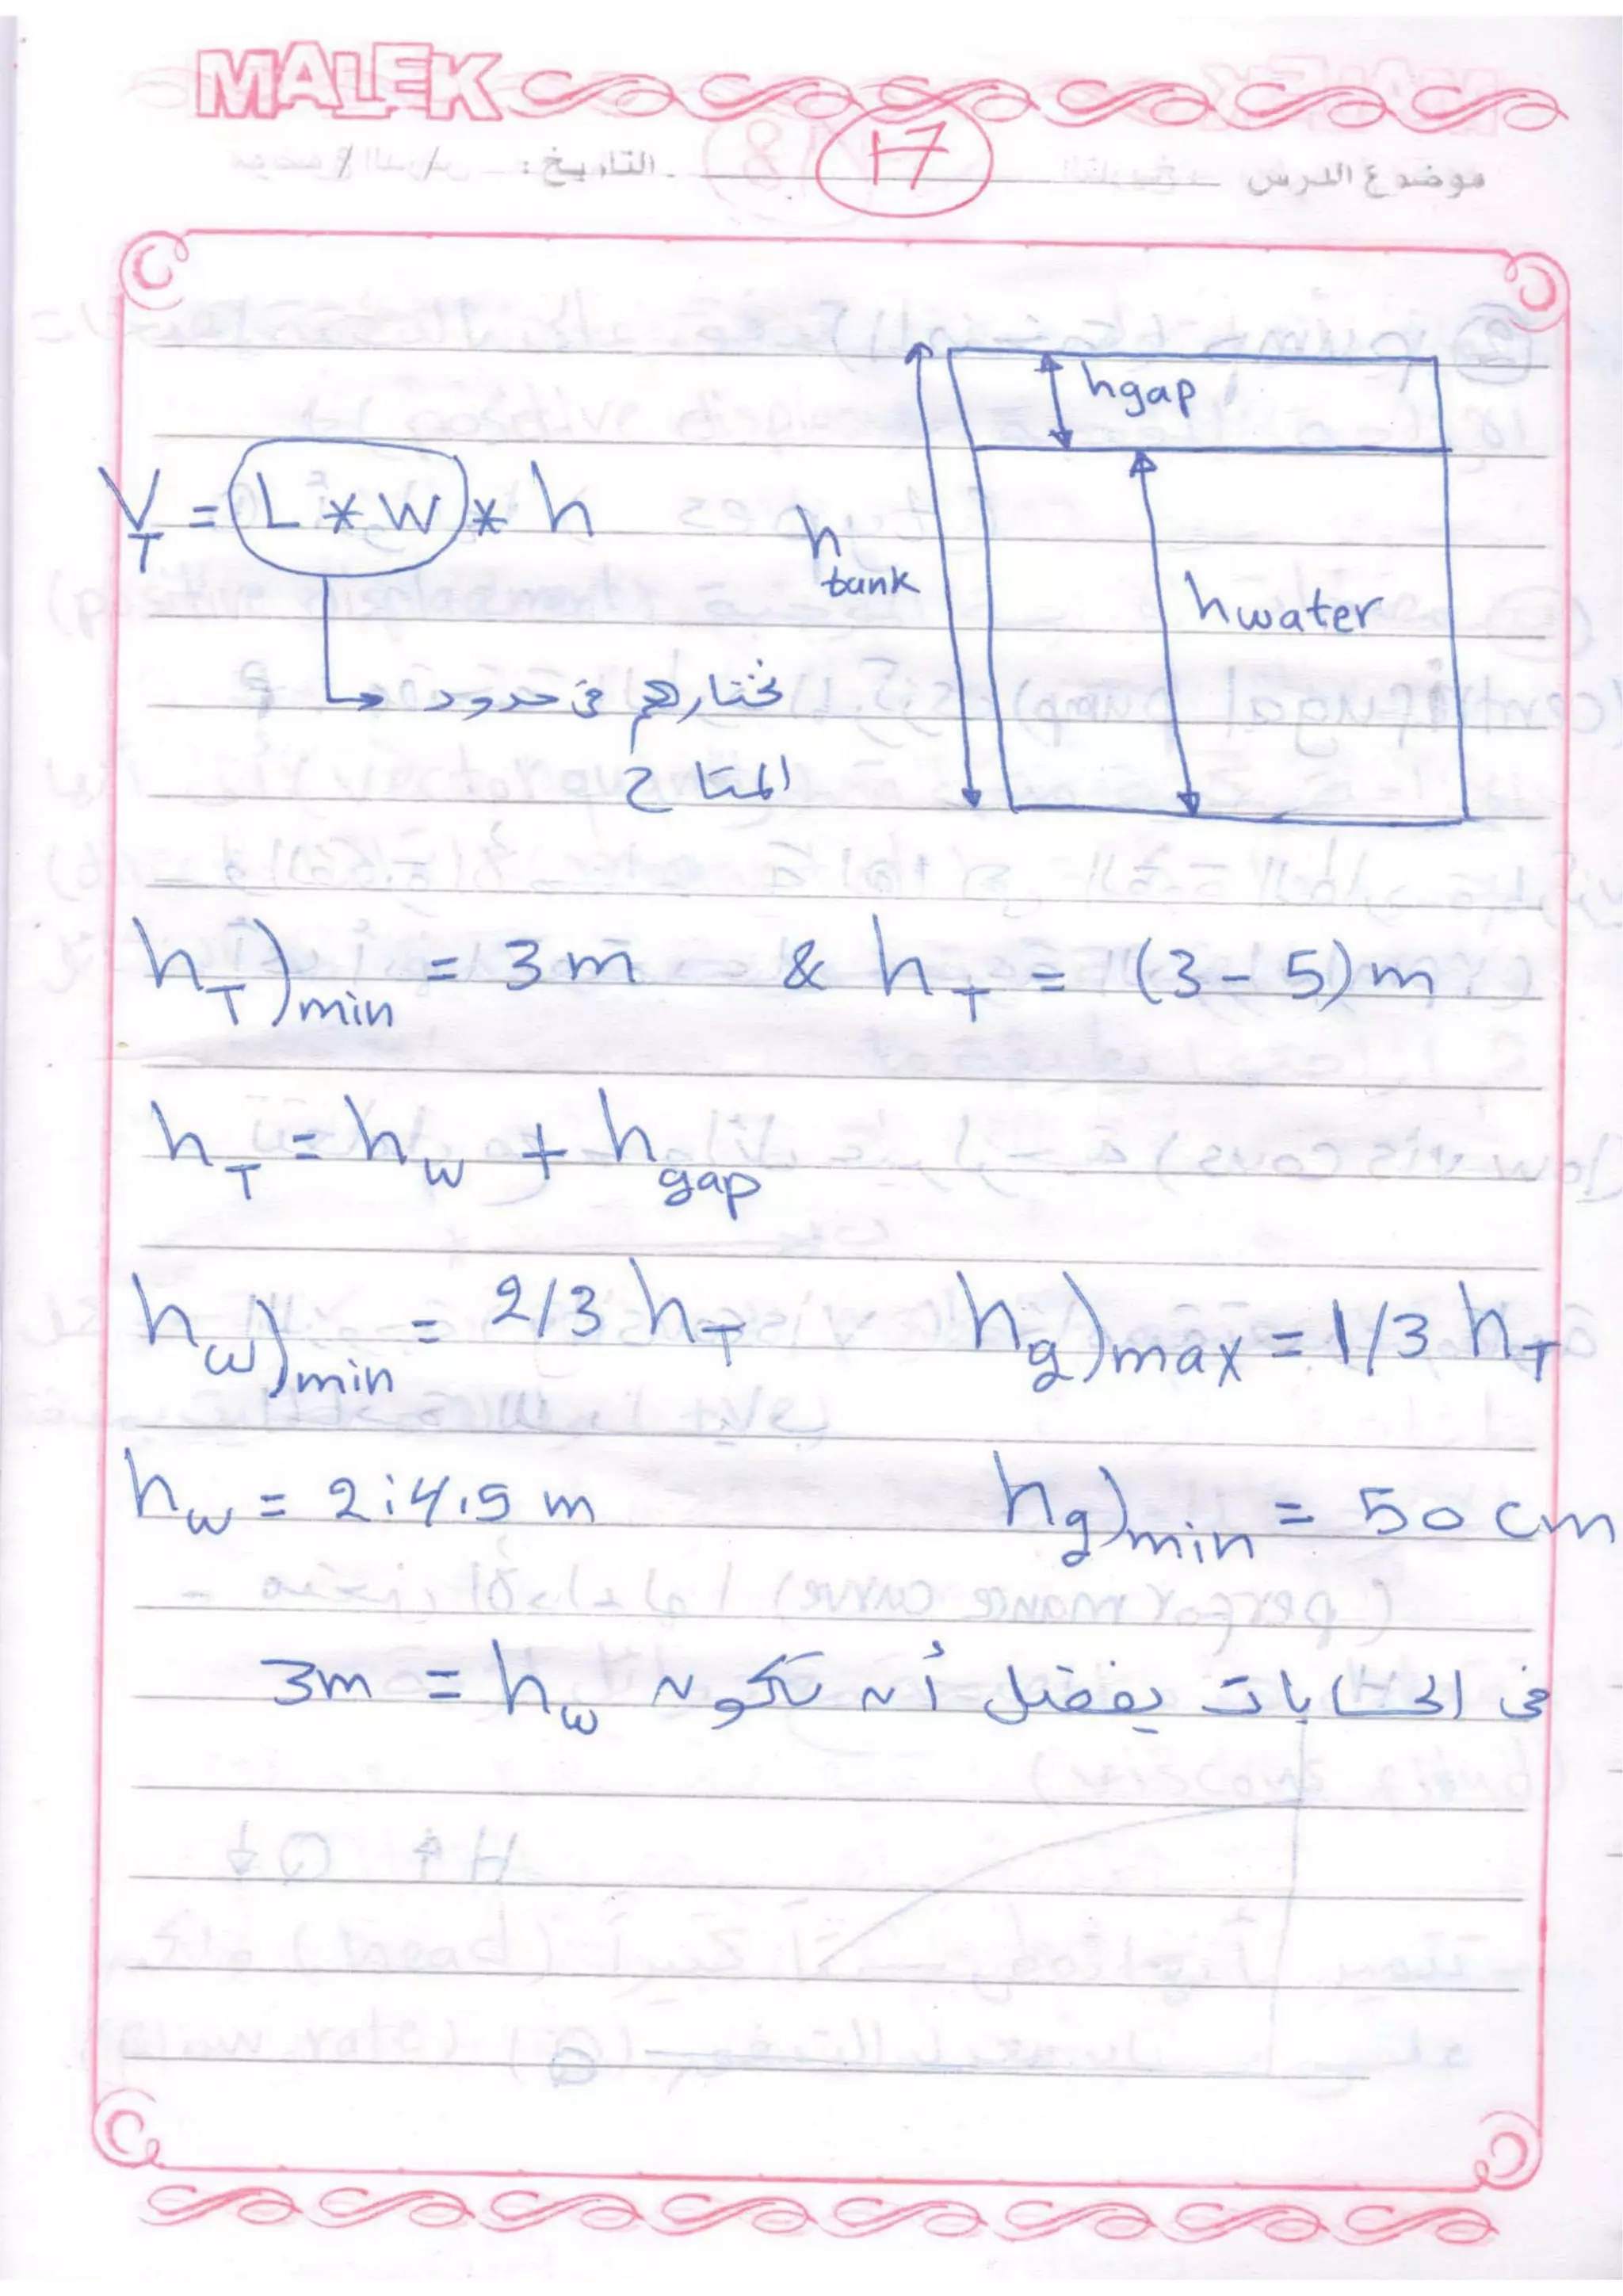 MALEK
موضوع الدرس 17 التاريخ : / /
hgap
V_T = (L * W) * h
h_tank
hwater
نختارهم فى حدود
المتاح
h_T)min = 3m & h_T = (3 - 5)m
h_T = h_w + h_gap
h_w)min = 2/3 h_T h_g)max = 1/3 h_T
h_w = 2:4.5 m h_g)min = 50 cm
فى الحسابات يفضل أن تكون h_w = 3m